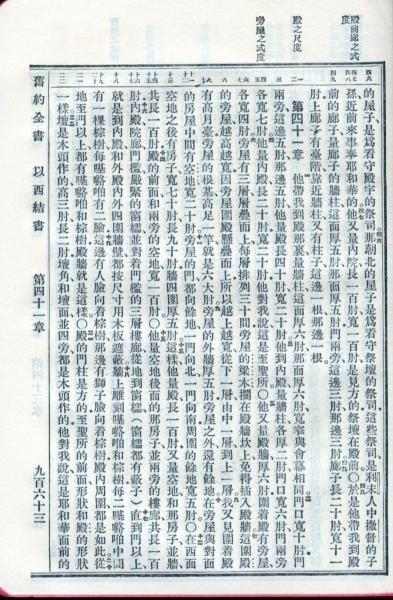 殿前廊之式度
殿之尺度
旁屋之式度
的屋子是爲看守殿宇的祭司那朝北的屋子是爲看守祭壇的祭司這些祭司是利未人中撒督的子
孫近前來事奉耶和華的他又量內院長一百肘寬一百肘是見方的祭壇在殿前○於是他帶我到殿
前的廊子量廊子的牆柱這面厚五肘那面厚五肘門兩旁這邊三肘那邊三肘廊子長二十肘寬十一
肘上廊子有臺階靠近牆柱又有柱子這邊一根那邊一根
第四十一章 他帶我到殿那裏量牆柱這面厚六肘那面厚六肘寬窄與會幕相同門口寬十肘門
兩旁這邊五肘那邊五肘他量殿長四十肘寬二十肘他到內殿量牆柱各厚二肘門口寬六肘門兩旁
各寬七肘他量內殿長二十肘寬二十肘他對我說這是至聖所○他又量殿牆厚六肘圍着殿有旁屋
各寬四肘旁屋有三層層疊而上每層排列三十間旁屋的梁木擱在殿牆坎上免得插入殿牆這圍殿
的旁屋越高越寬因旁屋圍殿懸疊而上所以越上越寬從下一層由中一層到上一層我又見圍着殿
有高月臺旁屋的根基高足一竿就是六大肘旁屋的外牆厚五肘旁屋之外還有餘地在旁屋與對面
的房屋中間有空地寬二十肘旁屋的門都向餘地一門向北一門向南周圍的餘地寬五肘○在西面
空地之後有房子寬七十肘長九十肘牆四圍厚五肘這樣他量殿長一百肘又量空地和那房子並牆
共長一百肘殿的前面和兩旁的空地寬一百肘○他量空地後面的那房子並兩旁的樓廊共長一百
肘內殿院廊門檻嚴緊的窗櫺並對着門檻的三層樓廊從地到窗櫺(窗櫺都有蔽子)直到門以上
就是到內殿和外殿內外四圍牆壁都按尺寸用木板遮蔽牆上雕刻嘰嚕咟和棕樹每二嘰嚕咟中間
有一棵棕樹每嘰嚕咟有二臉這邊有人臉向着棕樹那邊有獅子臉向着棕樹殿內周圍都是如此從
地至門以上都有嘰嚕咟和棕樹殿牆就是這樣○殿的門柱是方的至聖所的前面形狀和殿的形狀
一樣壇是木頭作的高三肘長二肘壇角和壇面並四旁都是木頭作的他對我說這是耶和華面前的
舊約全書 以西結書 第四十一章 九百六十三